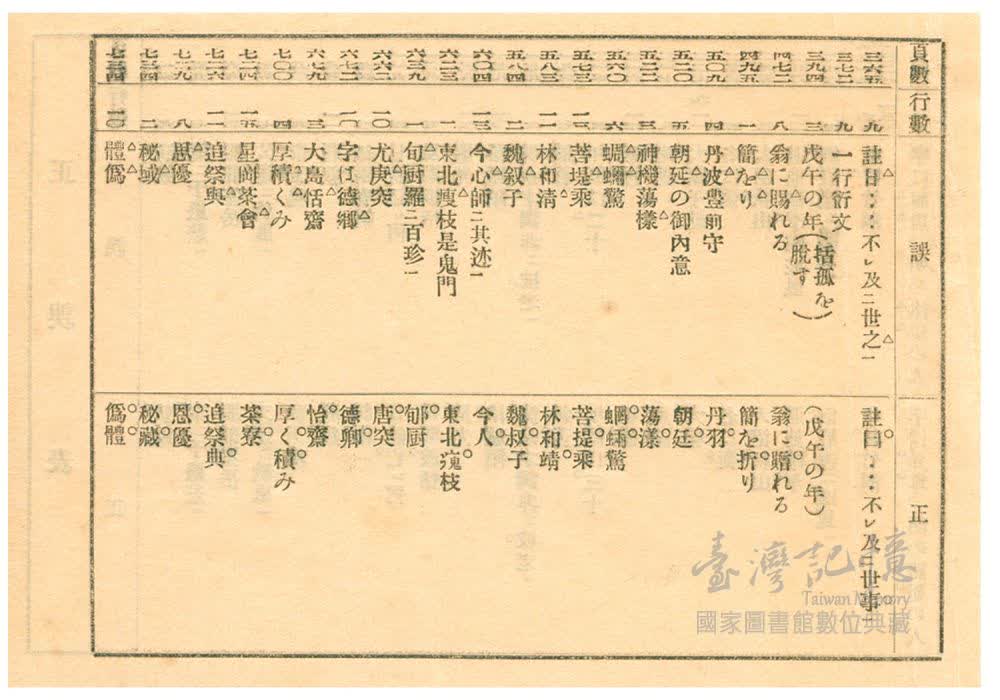 頁數 行數 誤 正
三六五 九 註日：：：不レ及ニ世之一 註曰：：：不レ及ニ世事一
三七二 九 一行衍文
三九四 三 戊午の年(括孤を脫す) (戊午の年)
四七二 八 翁に賜れる 翁に贈れる
四九五 一 簡をり 簡を折り
五〇九 四 丹波豊前守 丹羽
五二〇 五 朝延の御內意 朝廷
神機蕩樣 蕩漾
五六〇 六 驚 驚
五七三 一三 菩堤乘 菩提乘
五八三 一一 林和清 林和靖
五八四 二 魏叙子 魏叔子
六〇四 一三 今心師ニ其迹一 今人
六二三 一 東北瘦枝是鬼門 東北枝
六三九 一 旬厨羅ニ百珍一 郇厨
六六二 一〇 尤庚突 唐突
六七二 一〇 字は德鄉 德卿
六七九 三 大島恬齋 怡齋
七〇〇 四 厚積くみ 厚く積み
一五 星崗茶會 茶寮
七二六 一一 追祭與 追祭典
七二九 八 思優 恩優
二 秘域 秘藏
七三四 一〇 體僞 僞體
臺灣記憶
Taiwan Memory
國家圖書館數位典藏